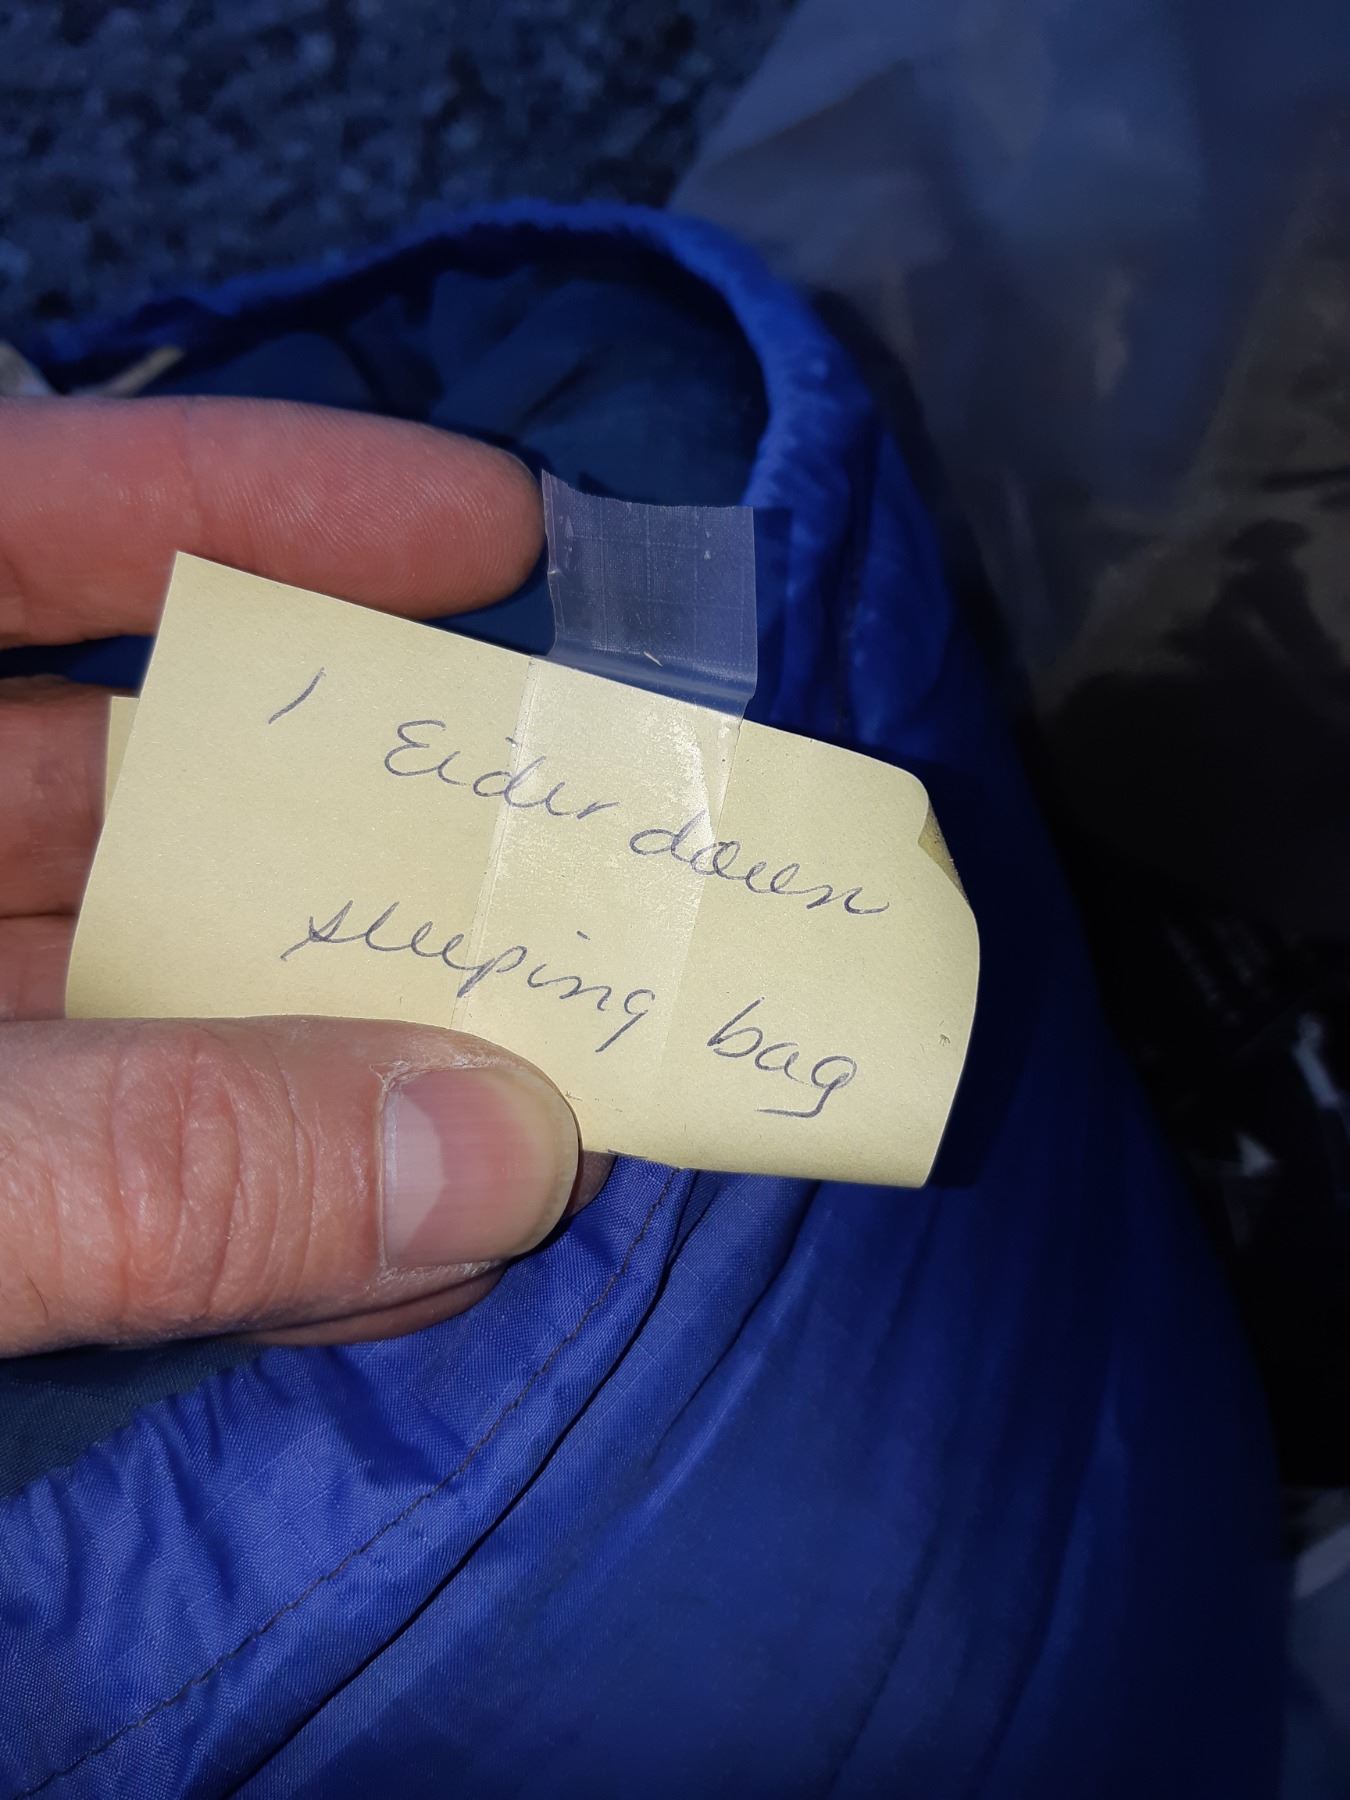 1 Eider down
sleeping bag